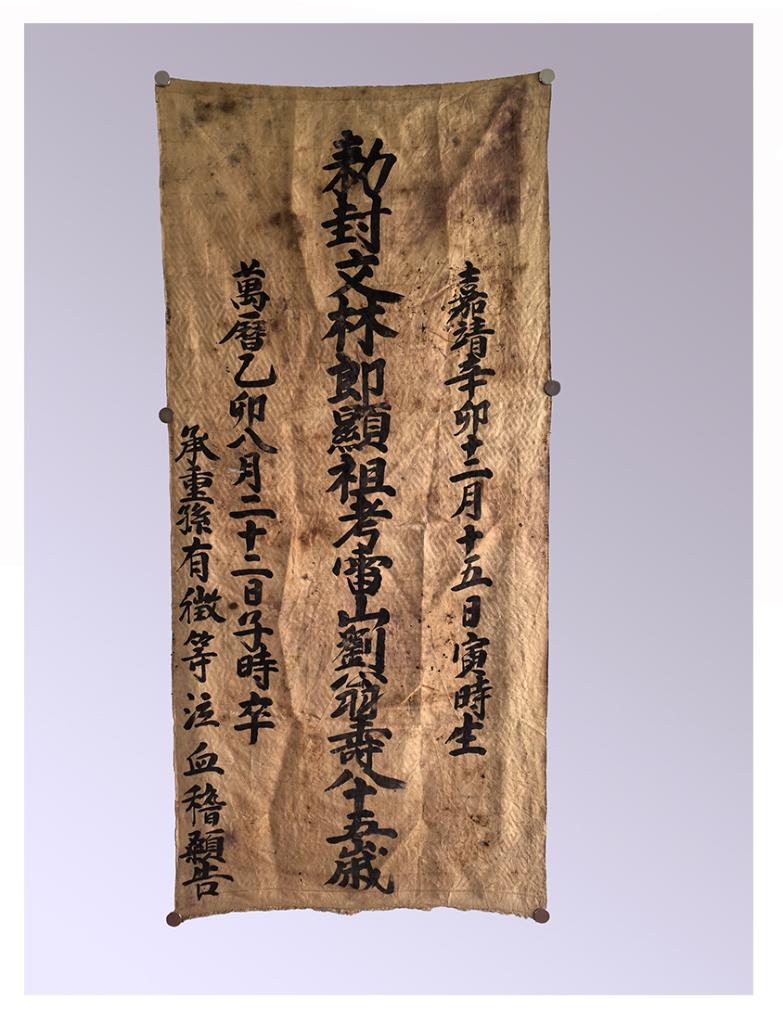 嘉靖辛卯十二月十五日寅時生
勅封文林郎顯祖考雷山劉翁壽八十五歲
萬曆乙卯八月二十二日子時卒
承重孫有徵等泣血稽顙告